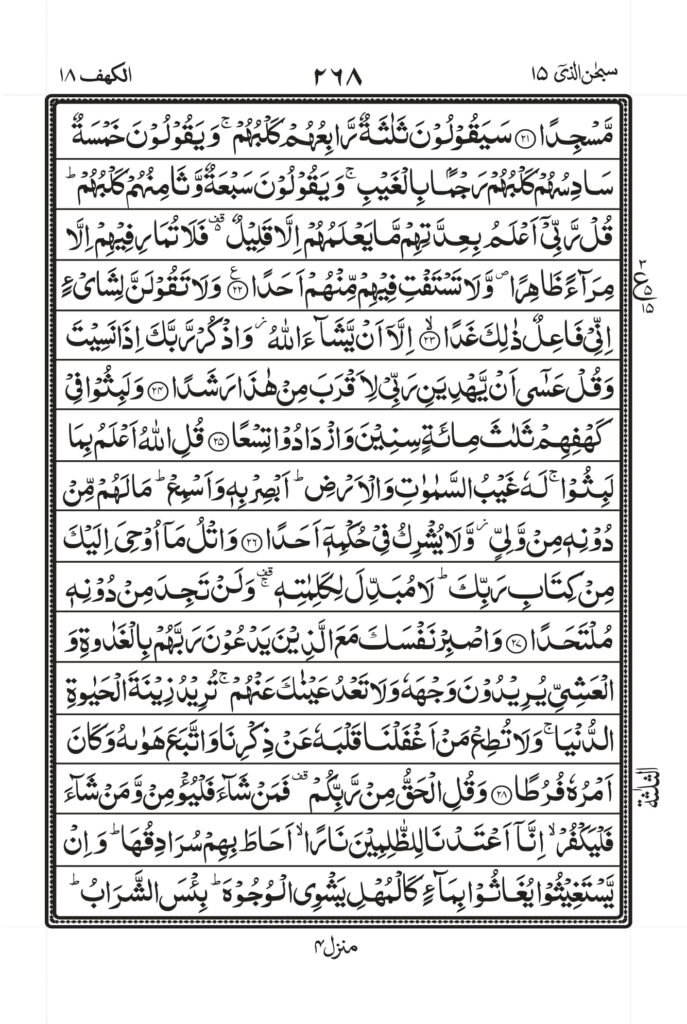 سبحٰن الذیٓ ۱۵
۲۶۸
الکہف ۱۸
مَّسْجِدًا ﴿۲۱﴾ سَيَقُوْلُوْنَ ثَلٰثَةٌ رَّابِعُهُمْ كَلْبُهُمْ ۚ وَيَقُوْلُوْنَ خَمْسَةٌ
سَادِسُهُمْ كَلْبُهُمْ رَجْمًۢا بِالْغَيْبِ ۚ وَيَقُوْلُوْنَ سَبْعَةٌ وَّثَامِنُهُمْ كَلْبُهُمْ ؕ
قُلْ رَّبِّيْٓ اَعْلَمُ بِعِدَّتِهِمْ مَّا يَعْلَمُهُمْ اِلَّا قَلِيْلٌ ۫ فَلَا تُمَارِ فِيْهِمْ اِلَّا
مِرَآءً ظَاهِرًا ۪ وَّلَا تَسْتَفْتِ فِيْهِمْ مِّنْهُمْ اَحَدًا ﴿۲۲﴾ ع وَلَا تَقُوْلَنَّ لِشَایْءٍ
۳
ع
۵
۱۵
اِنِّيْ فَاعِلٌ ذٰلِكَ غَدًا ﴿۲۳﴾ۙ اِلَّآ اَنْ يَّشَآءَ اللّٰهُ ؗ وَاذْكُرْ رَّبَّكَ اِذَا نَسِيْتَ
وَقُلْ عَسٰٓى اَنْ يَّهْدِيَنِ رَبِّيْ لِاَقْرَبَ مِنْ هٰذَا رَشَدًا ﴿۲۴﴾ وَلَبِثُوْا فِيْ
كَهْفِهِمْ ثَلٰثَ مِائَةٍ سِنِيْنَ وَازْدَادُوْا تِسْعًا ﴿۲۵﴾ قُلِ اللّٰهُ اَعْلَمُ بِمَا
لَبِثُوْا ۚ لَهٗ غَيْبُ السَّمٰوٰتِ وَالْاَرْضِ ؕ اَبْصِرْ بِهٖ وَاَسْمِعْ ؕ مَا لَهُمْ مِّنْ
دُوْنِهٖ مِنْ وَّلِيٍّ ؗ وَّلَا يُشْرِكُ فِيْ حُكْمِهٖٓ اَحَدًا ﴿۲۶﴾ وَاتْلُ مَآ اُوْحِيَ اِلَيْكَ
مِنْ كِتَابِ رَبِّكَ ؕ لَا مُبَدِّلَ لِكَلِمٰتِهٖ ۫ۚ وَلَنْ تَجِدَ مِنْ دُوْنِهٖ
مُلْتَحَدًا ﴿۲۷﴾ وَاصْبِرْ نَفْسَكَ مَعَ الَّذِيْنَ يَدْعُوْنَ رَبَّهُمْ بِالْغَدٰوةِ وَ
الْعَشِيِّ يُرِيْدُوْنَ وَجْهَهٗ وَلَا تَعْدُ عَيْنٰكَ عَنْهُمْ ۚ تُرِيْدُ زِيْنَةَ الْحَيٰوةِ
الدُّنْيَا ۚ وَلَا تُطِعْ مَنْ اَغْفَلْنَا قَلْبَهٗ عَنْ ذِكْرِنَا وَاتَّبَعَ هَوٰىهُ وَكَانَ
اَمْرُهٗ فُرُطًا ﴿۲۸﴾ وَقُلِ الْحَقُّ مِنْ رَّبِّكُمْ ۫ فَمَنْ شَآءَ فَلْيُؤْمِنْ وَّمَنْ شَآءَ
الثلٰثة
فَلْيَكْفُرْ ۙ اِنَّآ اَعْتَدْنَا لِلظّٰلِمِيْنَ نَارًا ۙ اَحَاطَ بِهِمْ سُرَادِقُهَا ؕ وَاِنْ
يَّسْتَغِيْثُوْا يُغَاثُوْا بِمَآءٍ كَالْمُهْلِ يَشْوِي الْوُجُوْهَ ؕ بِئْسَ الشَّرَابُ ؕ
منزل ۴